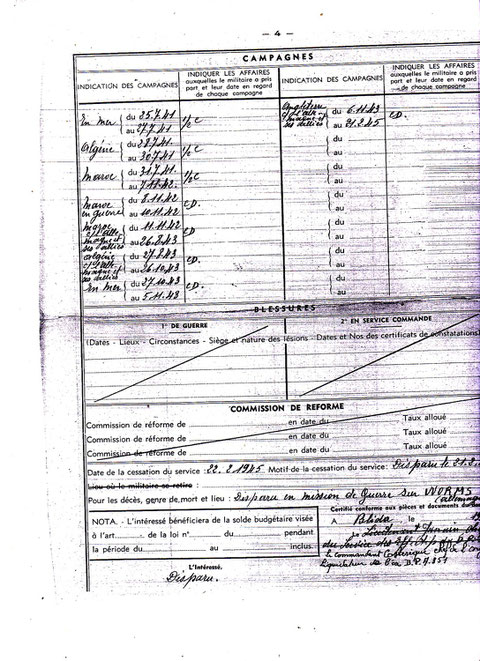 — 4 —
CAMPAGNES
INDICATION DES CAMPAGNES
INDIQUER LES AFFAIRES
auxquelles le militaire a pris
part et leur date en regard
de chaque campagne
INDICATION DES CAMPAGNES
INDIQUER LES AFFAIRES
auxquelles le militaire a pris
part et leur date en regard
de chaque campagne
En mer du 25.7.41
au 27.7.41 1/2 C
Algérie du 28.7.41
au 30.7.41 1/2 C
Maroc du 31.7.41
au 7.11.42. 1/2 C
Maroc en guerre du 8.11.42
au 10.11.42 CD.
Maroc du 11.11.42
au 26.2.43 CD
Algérie du 27.2.43
au 26.10.43 CD
En mer du 27.10.43
au 5.11.43 CD.
Angleterre du 6.11.43
au 21.2.45 CD.
du
au
du
au
du
au
du
au
du
au
du
au
BLESSURES
1° DE GUERRE
2° EN SERVICE COMMANDE
(Dates - Lieux - Circonstances - Siège et nature des lésions - Dates et Nos des certificats de constatations)
COMMISSION DE REFORME
Commission de réforme de en date du Taux alloué
Commission de réforme de en date du Taux alloué
Commission de réforme de en date du Taux alloué
Date de la cessation du service : 22.2.1945 Motif de la cessation du service : Disparu le 21.2
Lieu où le militaire se retire :
Pour les décès, genre de mort et lieu : Disparu en mission de Guerre sur WORMS
(Allemagne
NOTA. - L'intéressé bénéficiera de la solde budgétaire visée
à l'art. de la loi n° du pendant
la période du au inclus.
Certifié conforme aux pièces et documents du
A Blida le
L'intéressé.
Disparu.